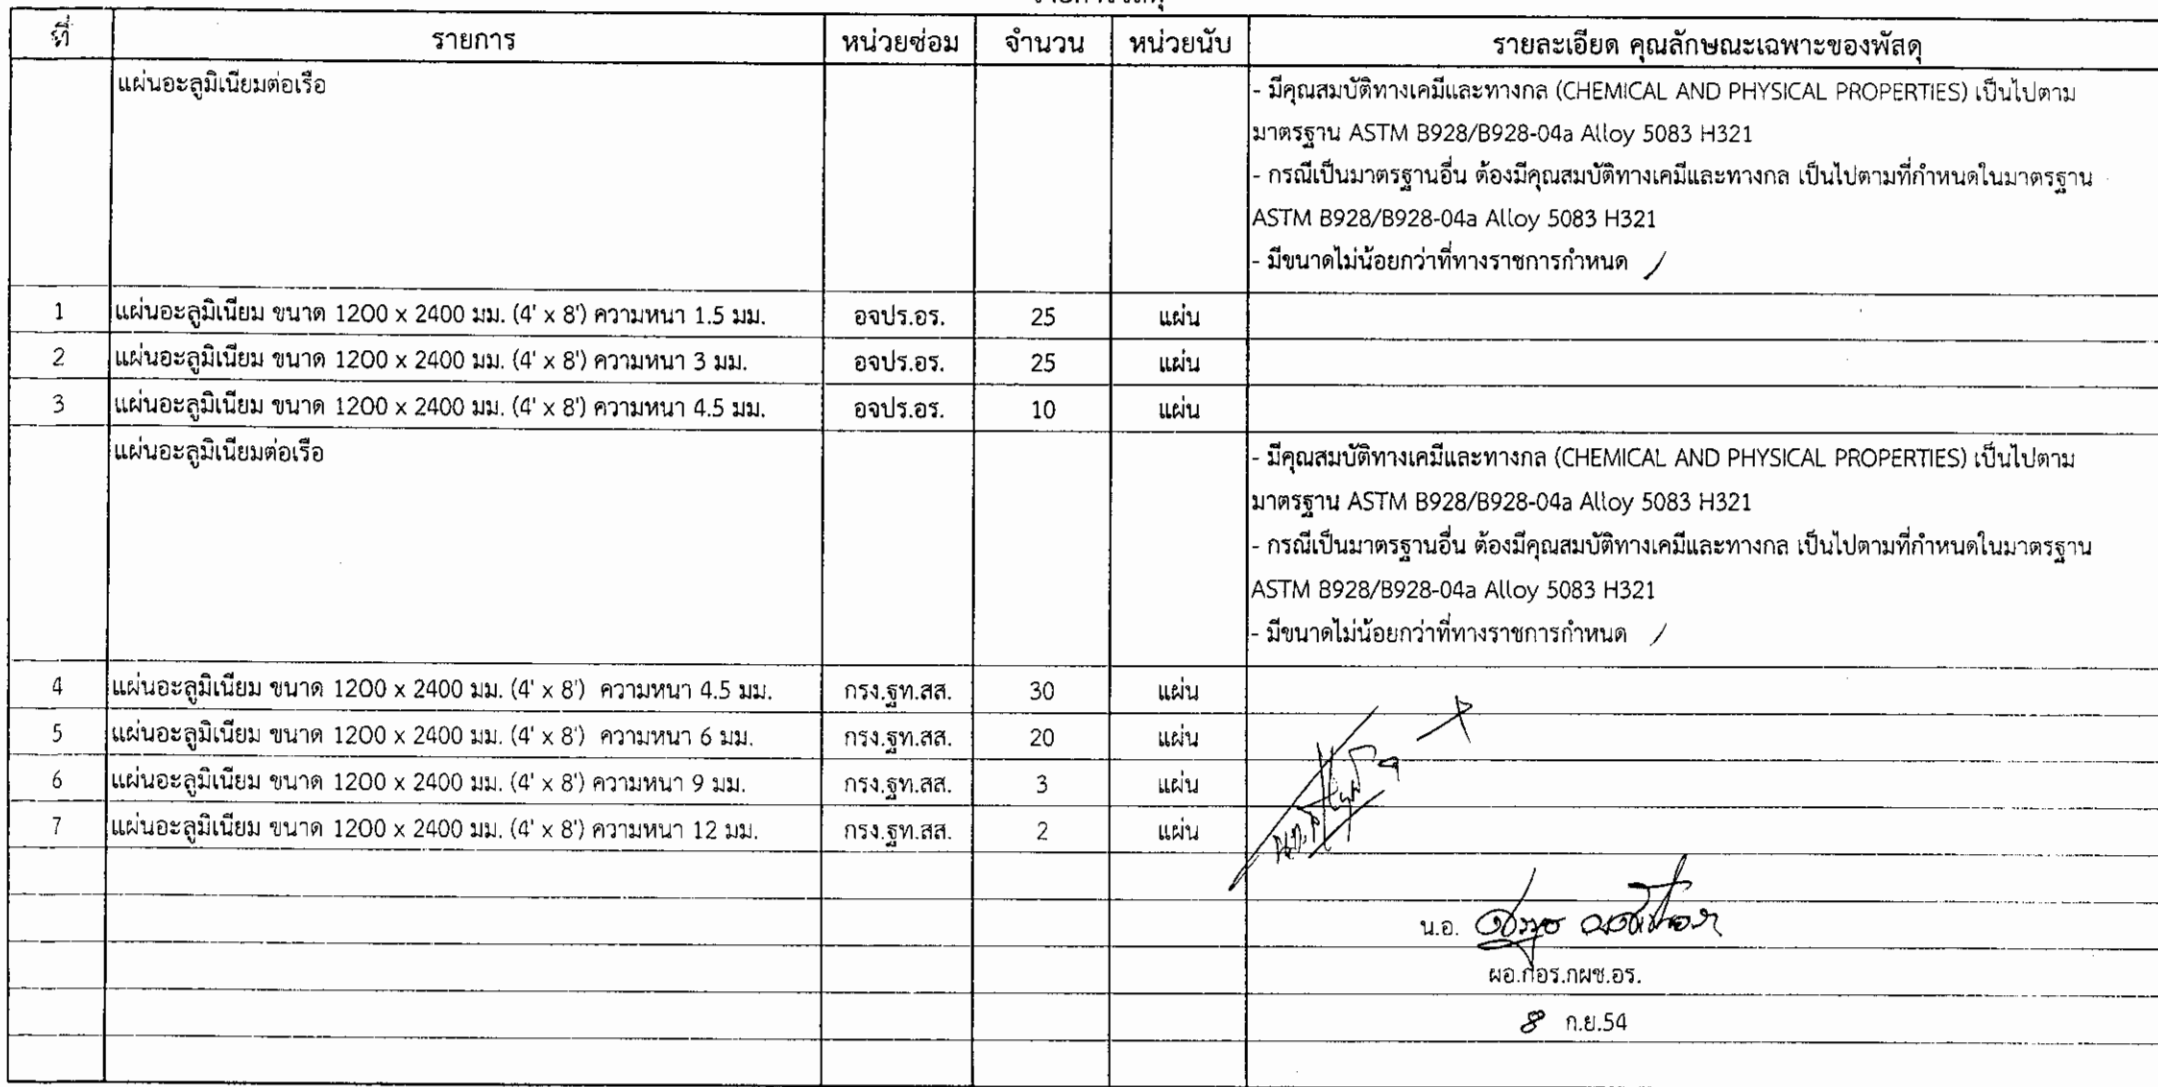 ที่ รายการ หน่วยซ่อม จำนวน หน่วยนับ รายละเอียด คุณลักษณะเฉพาะของพัสดุ
แผ่นอะลูมิเนียมต่อเรือ - มีคุณสมบัติทางเคมีและทางกล (CHEMICAL AND PHYSICAL PROPERTIES) เป็นไปตาม
มาตรฐาน ASTM B928/B928-04a Alloy 5083 H321
- กรณีเป็นมาตรฐานอื่น ต้องมีคุณสมบัติทางเคมีและทางกล เป็นไปตามที่กำหนดในมาตรฐาน
ASTM B928/B928-04a Alloy 5083 H321
- มีขนาดไม่น้อยกว่าที่ทางราชการกำหนด
1 แผ่นอะลูมิเนียม ขนาด 1200 x 2400 มม. (4' x 8') ความหนา 1.5 มม. อจปร.อร. 25 แผ่น
2 แผ่นอะลูมิเนียม ขนาด 1200 x 2400 มม. (4' x 8') ความหนา 3 มม. อจปร.อร. 25 แผ่น
3 แผ่นอะลูมิเนียม ขนาด 1200 x 2400 มม. (4' x 8') ความหนา 4.5 มม. อจปร.อร. 10 แผ่น
แผ่นอะลูมิเนียมต่อเรือ - มีคุณสมบัติทางเคมีและทางกล (CHEMICAL AND PHYSICAL PROPERTIES) เป็นไปตาม
มาตรฐาน ASTM B928/B928-04a Alloy 5083 H321
- กรณีเป็นมาตรฐานอื่น ต้องมีคุณสมบัติทางเคมีและทางกล เป็นไปตามที่กำหนดในมาตรฐาน
ASTM B928/B928-04a Alloy 5083 H321
- มีขนาดไม่น้อยกว่าที่ทางราชการกำหนด
4 แผ่นอะลูมิเนียม ขนาด 1200 x 2400 มม. (4' x 8') ความหนา 4.5 มม. กรง.ฐท.สส. 30 แผ่น
5 แผ่นอะลูมิเนียม ขนาด 1200 x 2400 มม. (4' x 8') ความหนา 6 มม. กรง.ฐท.สส. 20 แผ่น
6 แผ่นอะลูมิเนียม ขนาด 1200 x 2400 มม. (4' x 8') ความหนา 9 มม. กรง.ฐท.สส. 3 แผ่น
7 แผ่นอะลูมิเนียม ขนาด 1200 x 2400 มม. (4' x 8') ความหนา 12 มม. กรง.ฐท.สส. 2 แผ่น
น.อ.
ผอ.กอร.กผช.อร.
8 ก.ย.54